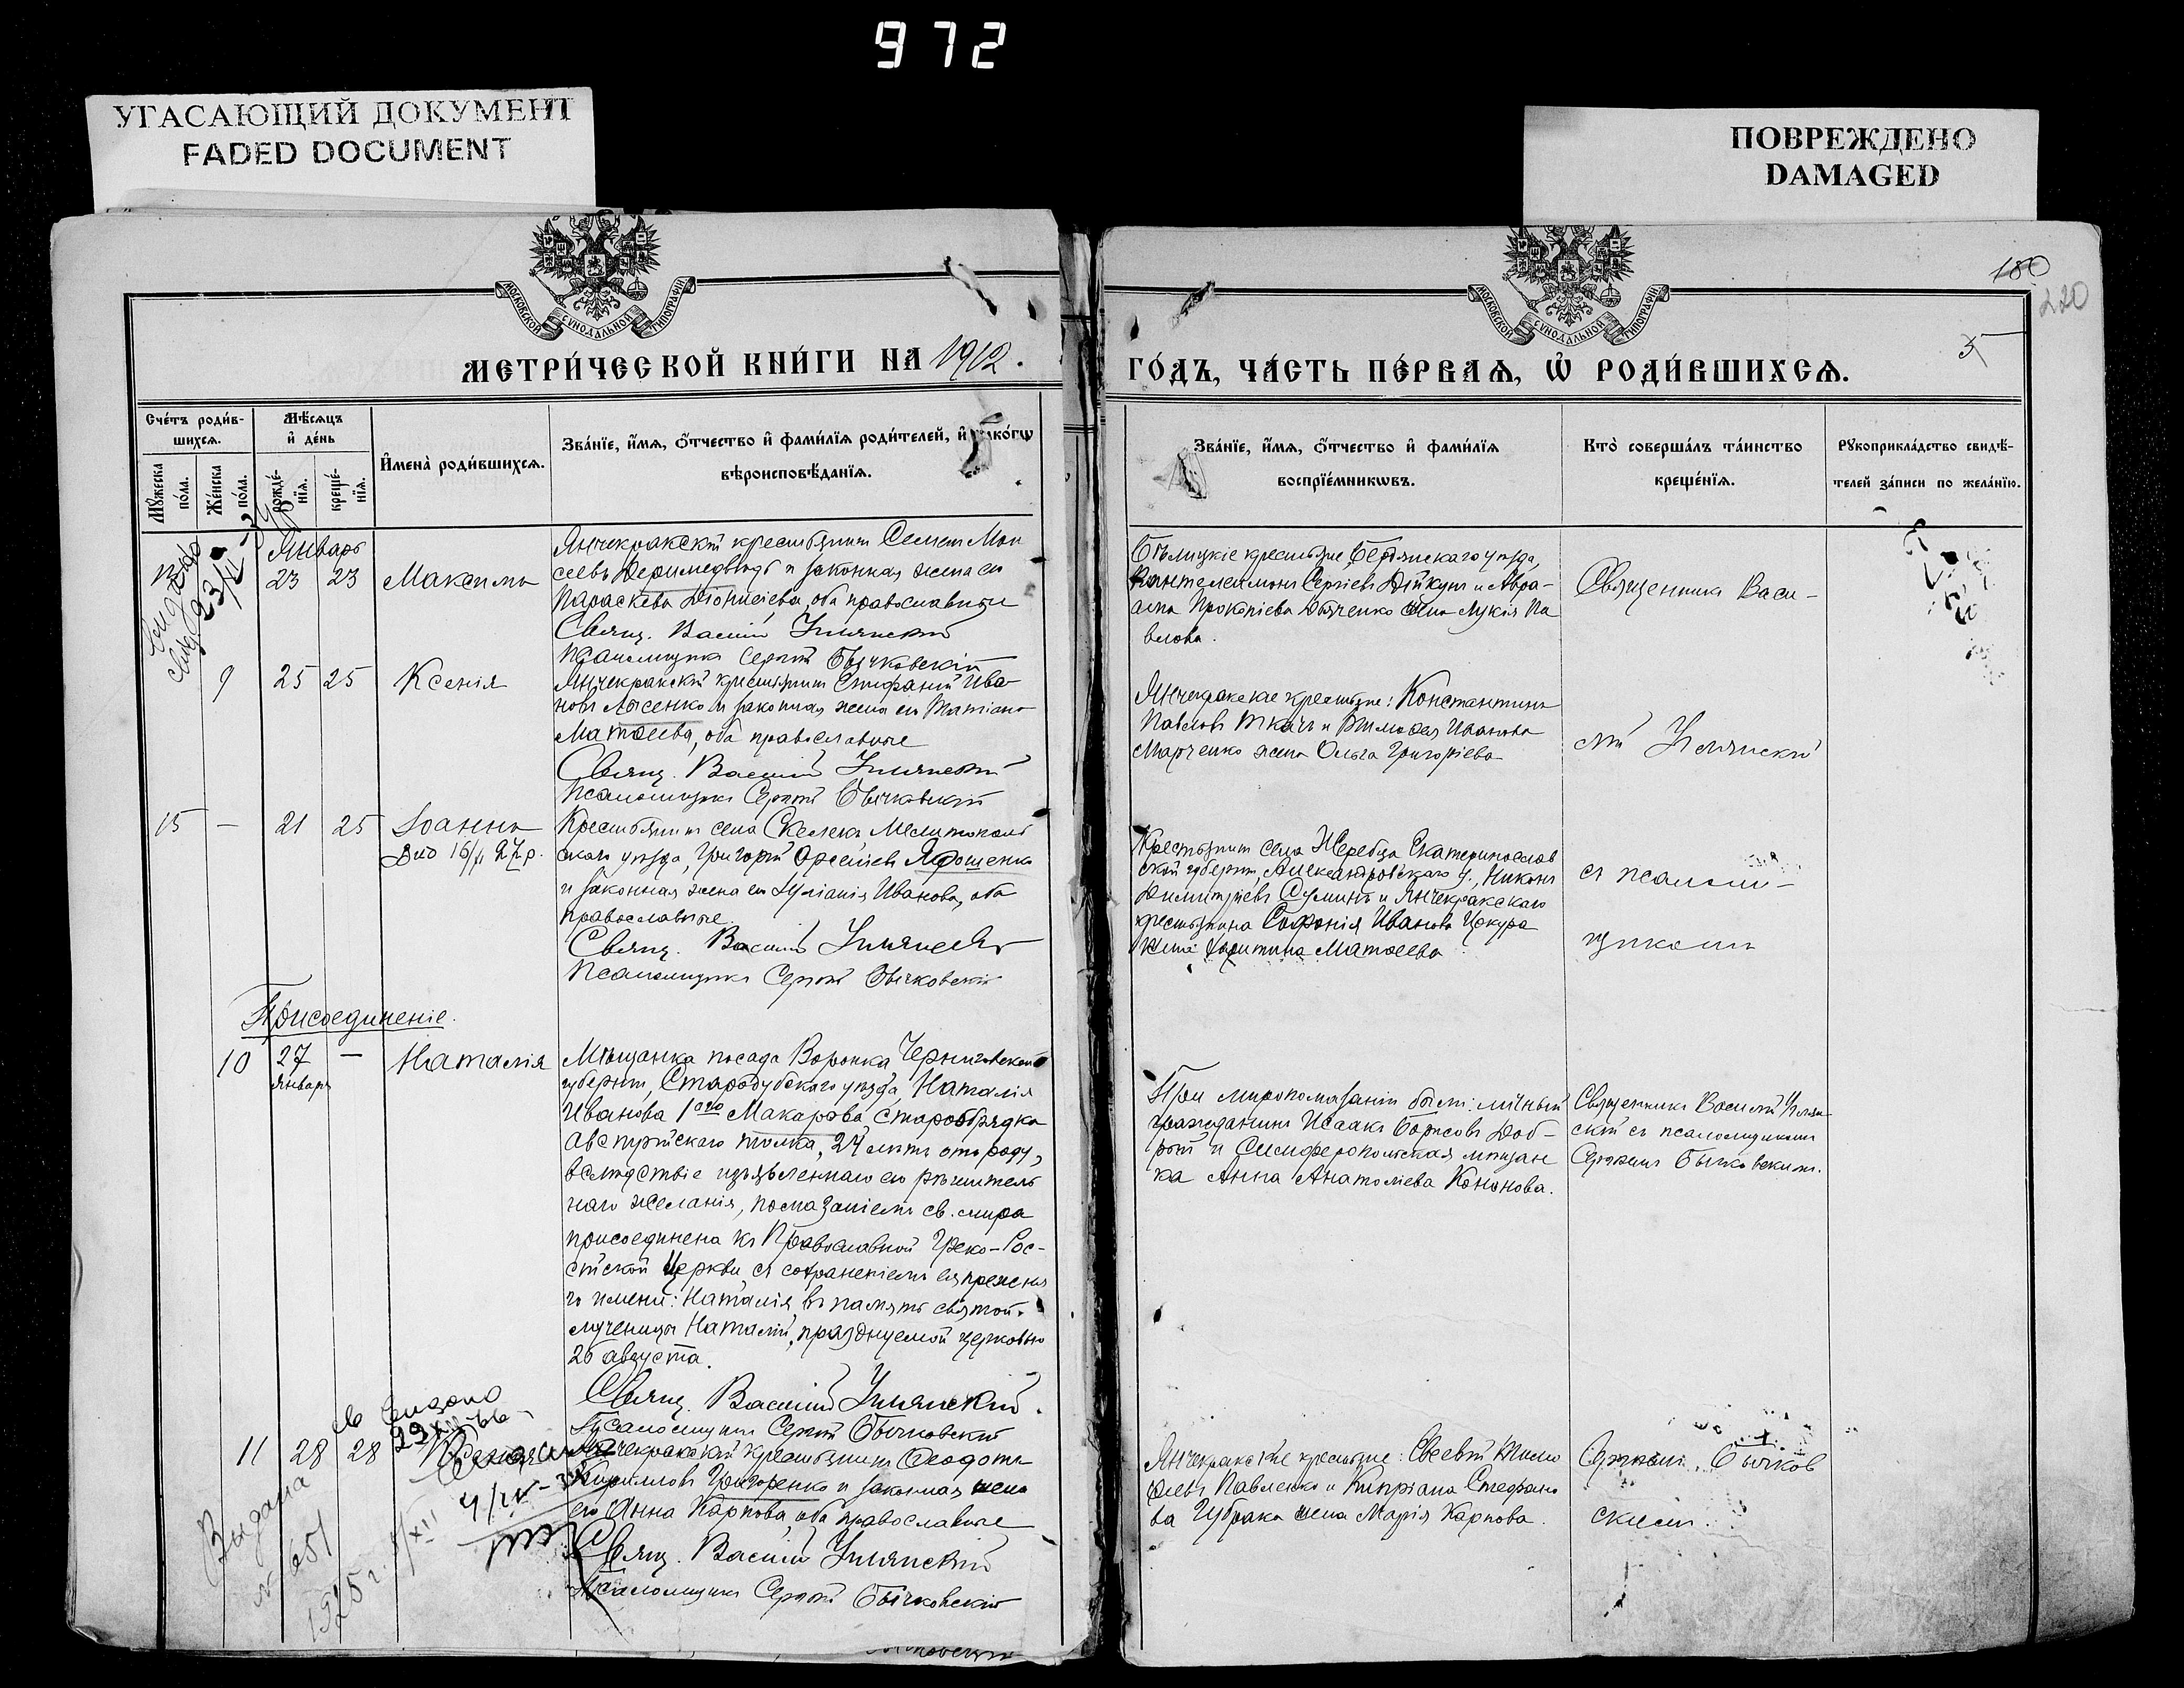 972
УГАСАЮЩИЙ ДОКУМЕНТ
FADED DOCUMENT
ПОВРЕЖДЕНО
DAMAGED
МОСКОВСКОЙ СѴНОДАЛЬНОЙ ТИПОГРАФІИ
МОСКОВСКОЙ СѴНОДАЛЬНОЙ ТИПОГРАФІИ
180
220
5
МЕТРИ́ЧЕСКОЙ КНИ́ГИ НА 1912.
ГО́ДЪ, ЧА́СТЬ ПЕ́РВАѦ, Ѡ РОДИ́ВШИХСѦ.
Сче́тъ роди́в-
шихсѧ.
Мѣ́сѧцъ
и де́нь
Мꙋ́жеска
по́ла.
Же́нска
по́ла.
рожде́-
нїѧ.
креще́-
нїѧ.
И́мена̀ роди́вшихсѧ.
Зва́нїе, и́мѧ, ѻ́тчество и фами́лїѧ роди́телей, и
вѣроисповѣ́данїѧ.
Зва́нїе, и́мѧ, ѻ́тчество и фами́лїѧ
воспрїе́мникѡвъ.
Кто̀ соверша́лъ та́инство
креще́нїѧ.
Рꙋкоприкла́дство свидѣ́-
телей за́писи по жела́нїю.
Январь
23 23 Максимъ
Янчекракскій крестьянинъ
и законная жена его
Параскева Діонисіева, оба православные
Свящ. Василій
Псаломщикъ Сергій Бычковскій
Бѣлицкіе крестьяне Бердянскаго уѣзда,
Пантелеимонъ Сергіевъ Дикунъ и Авра-
ама Прокопіева Дьяченко жена Лукія Па
влова.
Священникъ Васи-
9 25 25 Ксенія
Янчекракскій крестьянинъ Стефанъ Ива-
новъ Лысенко и законная жена его Татіана
Матѳеева, оба православные
Свящ. Василій
Псаломщикъ Сергій Бычковскій
Янчекракскіе крестьяне: Константинъ
Павловъ Ткачъ и Тимоѳея Иванова
Марченко жена Ольга Григоріева
лій
15 — 21 25 Іоаннъ
Крестьянинъ села Скелека Мелитополь
скаго уѣзда, Григорій
и законная жена его Іуліанія Иванова, оба
православные.
Свящ. Василій
Псаломщикъ Сергій Бычковскій
Крестьянинъ села Жеребца Екатеринослав
ской губерніи, Александровскаго у., Никонъ
Димитріевъ Суминъ и Янчекракскаго
крестьянина Софронія Иванова Цокура
жена Матѳеева
съ псалом-
щикомъ
Присоединеніе.
10 27 — Наталія
Января
Мѣщанка посада Воронка Черниговской
губерніи, Стародубскаго уѣзда, Наталія
Иванова Макарова, старообрядка
австрійскаго толка, 24 лѣтъ отъ роду,
вслѣдствіе изъявленнаго ею рѣшитель
наго желанія, помазаніемъ св. мира
присоединена къ Православной Греко-Рос-
сійской Церкви съ сохраненіемъ ея прежня
го имени: Наталія въ память святой
мученицы Наталіи, празднуемой церковью
26 августа.
Свящ. Василій
Псаломщикъ Сергій Бычковскій
При миропомазаніи были: личный
гражданинъ Исаакъ Борисовъ Доб-
рый и Симферопольская мѣщан
ка Анна Анатоліева Кононова.
Священникъ Василій
скій съ псаломщикомъ
Сергіемъ Бычковскимъ.
11 28 28
Янчекракскій крестьянинъ Ѳеодотъ
Кирилловъ Григоренко и законная жена
его Анна Карпова, оба православные
Свящ. Василій
Псаломщикъ Сергій Бычковскій
Янчекракскіе крестьяне: Евсевій Тимо
ѳеевъ Павленко и Кипріана Стефано
ва Губрака жена Марія Карпова.
Сергіемъ Бычков
скимъ.
Выдана
№ 651